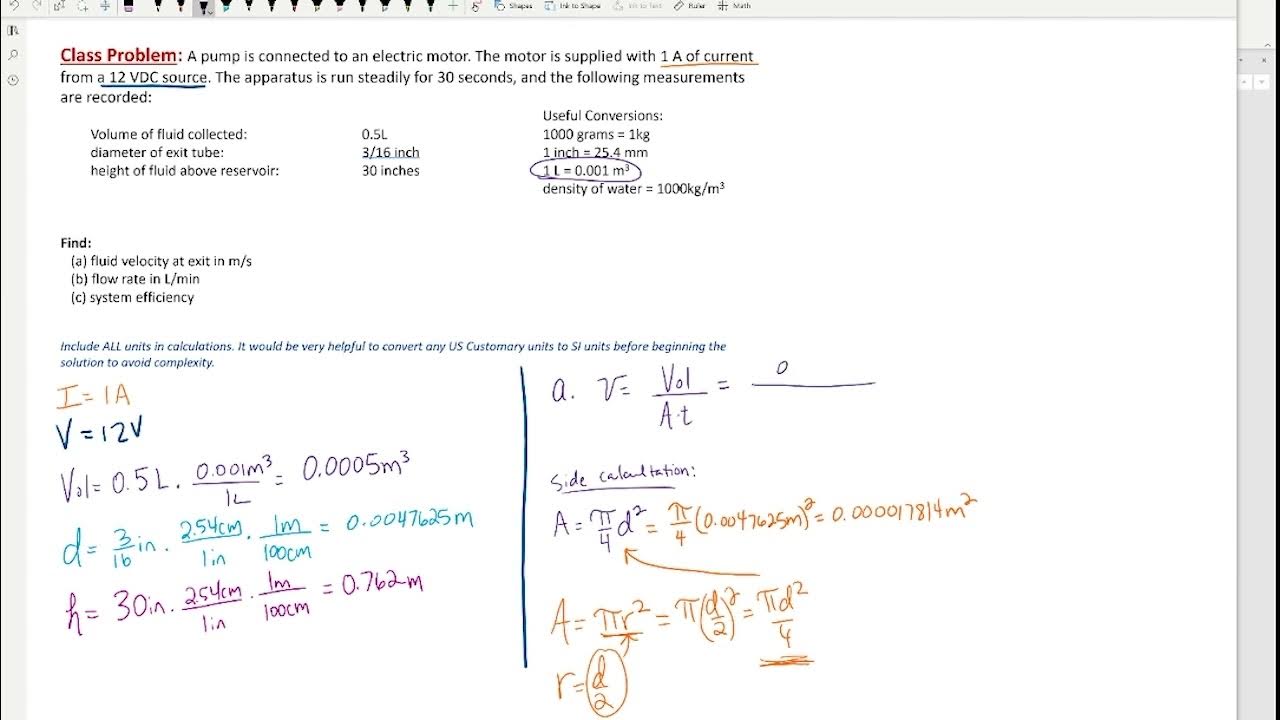 Shapes Ink to Shape Ink to Text Ruler Math
Class Problem: A pump is connected to an electric motor. The motor is supplied with 1 A of current
from a 12 VDC source. The apparatus is run steadily for 30 seconds, and the following measurements
are recorded:
Volume of fluid collected: 0.5L
diameter of exit tube: 3/16 inch
height of fluid above reservoir: 30 inches
Useful Conversions:
1000 grams = 1kg
1 inch = 25.4 mm
1 L = 0.001 m³
density of water = 1000kg/m³
Find:
(a) fluid velocity at exit in m/s
(b) flow rate in L/min
(c) system efficiency
Include ALL units in calculations. It would be very helpful to convert any US Customary units to SI units before beginning the
solution to avoid complexity.
I = 1A
V = 12V
Vol = 0.5L · 0.001m³/1L = 0.0005m³
d = 3/16 in · 2.54cm/1in · 1m/100cm = 0.0047625m
h = 30in · 2.54cm/1in · 1m/100cm = 0.762m
a. V = Vol/A·t = 0
Side calcultation:
A = π/4 d² = π/4 (0.0047625m)² = 0.000017814m²
A = πr² = π(d/2)² = πd²/4
r = d/2